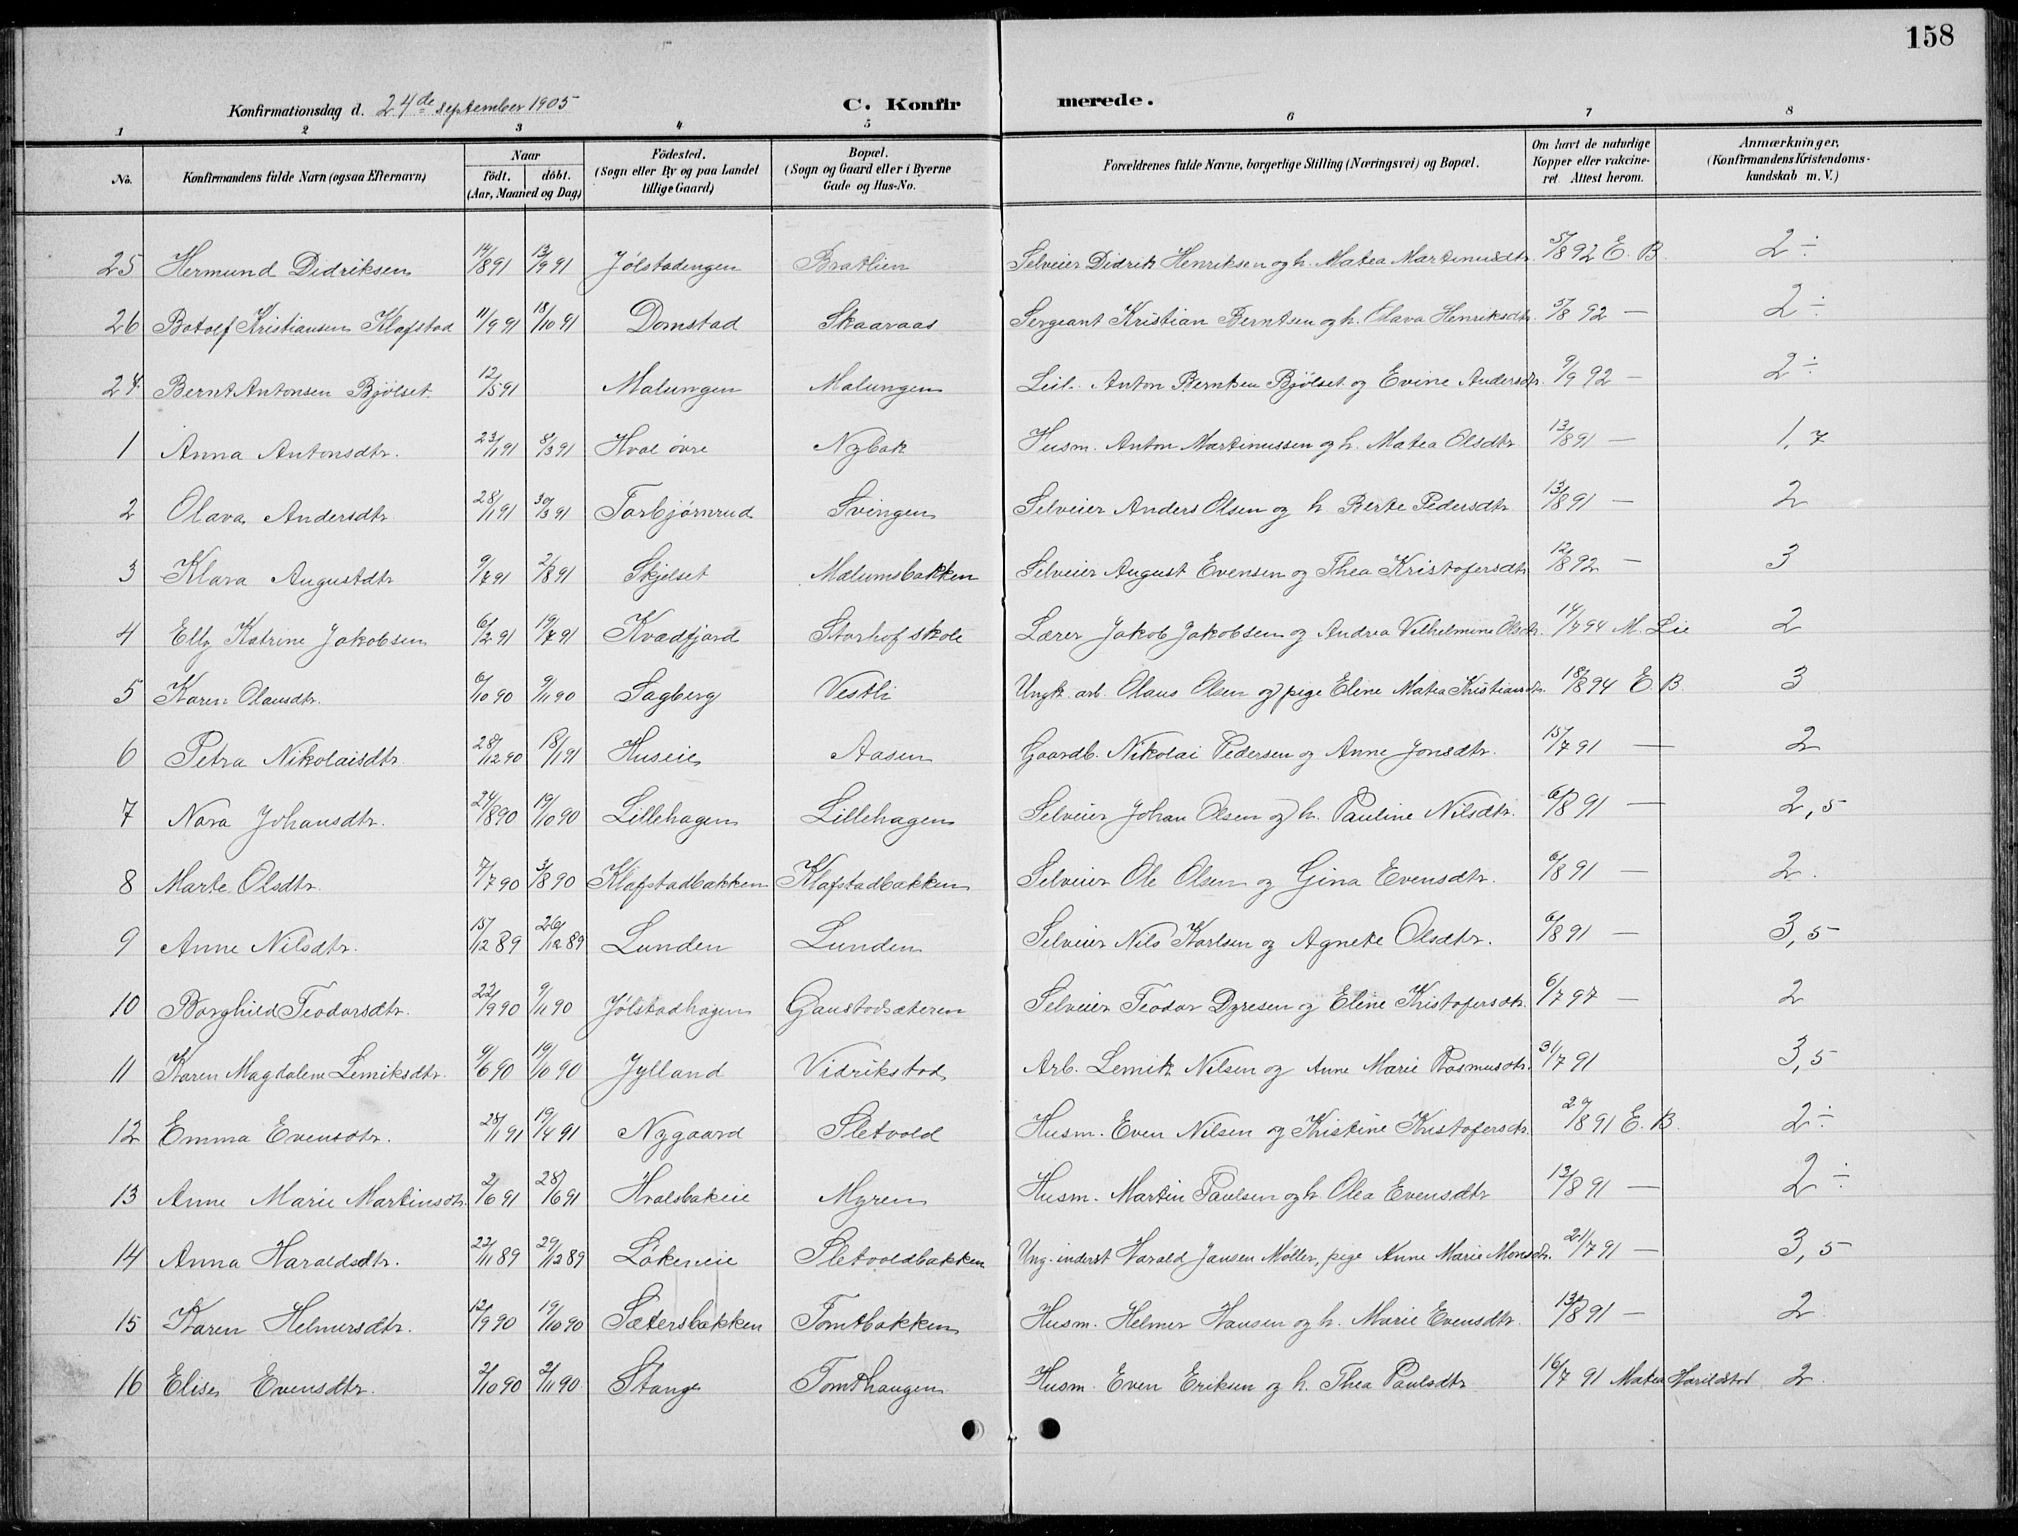 158
Konfirmationsdag d. 24de september 1905 C. Konfirmerede.
1 2 3 4 5 6 7 8
No. Konfirmandens fulde Navn (ogsaa Efternavn) Naar födt. döbt. (Aar, Maaned og Dag) Födested. (Sogn eller By og paa Landet tillige Gaard) Bopæl. (Sogn og Gaard eller i Byerne Gade og Hus-No. Forældrenes fulde Navne, borgerlige Stilling (Næringsvei) og Bopæl. Om havt de naturlige Kopper eller vakcineret. Attest herom. Anmærkninger. (Konfirmandens Kristendomskundskab m. V.)
25 Hermund Didriksen 14/8 91 13/9 91 Jølstadengen Bratlien Selveier Didrik Henriksen og h. Matea Martinusdtr. 5/8 92 E. B. 2 ÷
26 Botolf Kristiansen Klafstad 11/9 91 18/10 91 Domstad Skaaraas Sergeant Kristian Berntsen og h. Olava Henriksdtr. 5/8 92 — 2 ÷
24 Bernt Antonsen Bjølset 12/5 91 Malungen Malungen Leil. Anton Berntsen Bjølset og Evine Andersdtr. 9/9 92 — 2 ÷
1 Anna Antonsdtr. 23/1 91 8/3 91 Hval övre Nybak Husm. Anton Martinussen og h. Matea Olsdtr 13/8 91 — 1,7
2 Olava Andersdtr 28/1 91 30/3 91 Torbjørnrud Svingen Selveier Anders Olsen og h. Berte Pedersdtr. 13/8 91 — 2
3 Klara Augustdtr 9/7 91 2/8 91 Skjelset Malumsbakken Selveier August Evensen og Thea Kristofersdtr 12/8 92 — 3
4 Elly Katrine Jakobsen 6/2 91 19/7 91 Kvædfjord Storhof skole Lærer Jakob Jakobsen og Andrea Vilhelmine Olsdtr. 14/7 94 M. Lie 2
5 Karen Olausdtr. 6/10 90 9/11 90 Sagberg Vestli Ungk. arb. Olaus Olsen og pige Eline Matea Kristiansdtr. 18/8 94 E. B. 3
6 Petra Nikolaisdtr. 28/12 90 18/1 91 Huseie Aasen Gaardb. Nikolai Pedersen og Anne Jonsdtr. 15/7 91 — 2
7 Nora Johansdtr. 24/8 90 19/10 90 Lillehagen Lillehagen Selveier Johan Olsen og h. Pauline Nilsdtr. 6/8 91 — 2,5
8 Marte Olsdtr. 7/7 90 3/8 90 Klafstadbakken Klafstadbakken Selveier Ole Olsen og Gina Evensdtr. 6/8 91 — 2.
9 Anne Nilsdtr. 15/12 89 26/12 89 Lunden Lunden Selveier Nils Karlsen og Agnete Olsdtr. 6/8 91 — 3,5
10 Borghild Teodorsdtr. 22/9 90 9/11 90 Jølstadhagen Gaustadsæteren Selveier Teodor Dyresen og Eline Kristofersdtr. 6/7 97 — 2
11 Karen Magdalene Lemiksdtr. 9/6 90 19/10 90 Jylland Vidrikstad Arb. Lemik Nilsen og Anne Marie Rasmusdtr. 31/7 91 3,5
12 Emma Evensdtr. 28/1 91 19/4 91 Nygaard Sletvold Husm. Even Nilsen og Kristine Kristofersdtr. 29/8 91 E. B. 2 ÷
13 Anne Marie Martinsdtr. 2/6 91 28/6 91 Hvalsbakeie Myren Husm. Martin Paulsen og h. Olea Evensdtr 13/8 91 — 2 ÷
14 Anna Haraldsdtr. 22/11 89 29/12 89 Løkeneie Sletvoldbakken Ung. inderst Harald Jansen Møller, pige Anne Marie Monsdtr. 21/7 91 — 3,5
15 Karen Helmersdtr. 12/9 90 19/10 90 Sætersbakken Tomtbakken Husm. Helmer Hansen og h. Marie Evensdtr. 13/8 91 — 2
16 Elise Evensdtr. 2/10 90 2/11 90 Stange Tomthaugen Husm. Even Eriksen og h. Thea Paulsdtr 16/7 91 Matea Harildstad 2